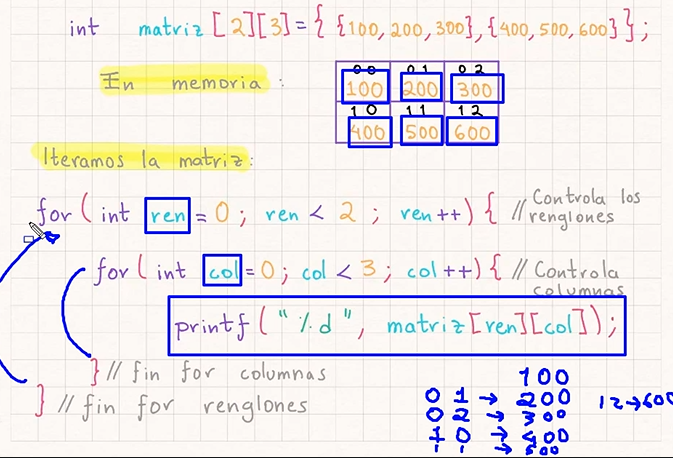 int matriz[2][3]={{100,200,300},{400,500,600}};
En memoria:
00 01 02
100 200 300
10 11 12
400 500 600
Iteramos la matriz:
for(int ren=0; ren<2; ren++){ // Controla los
renglones
for(int col=0; col<3; col++){ // Controla
columnas
printf("%d", matriz[ren][col]);
} // fin for columnas
} // fin for renglones
100
0 1 → 200
12→600
0 2 → 300
1 0 → 400
1 1 → 500